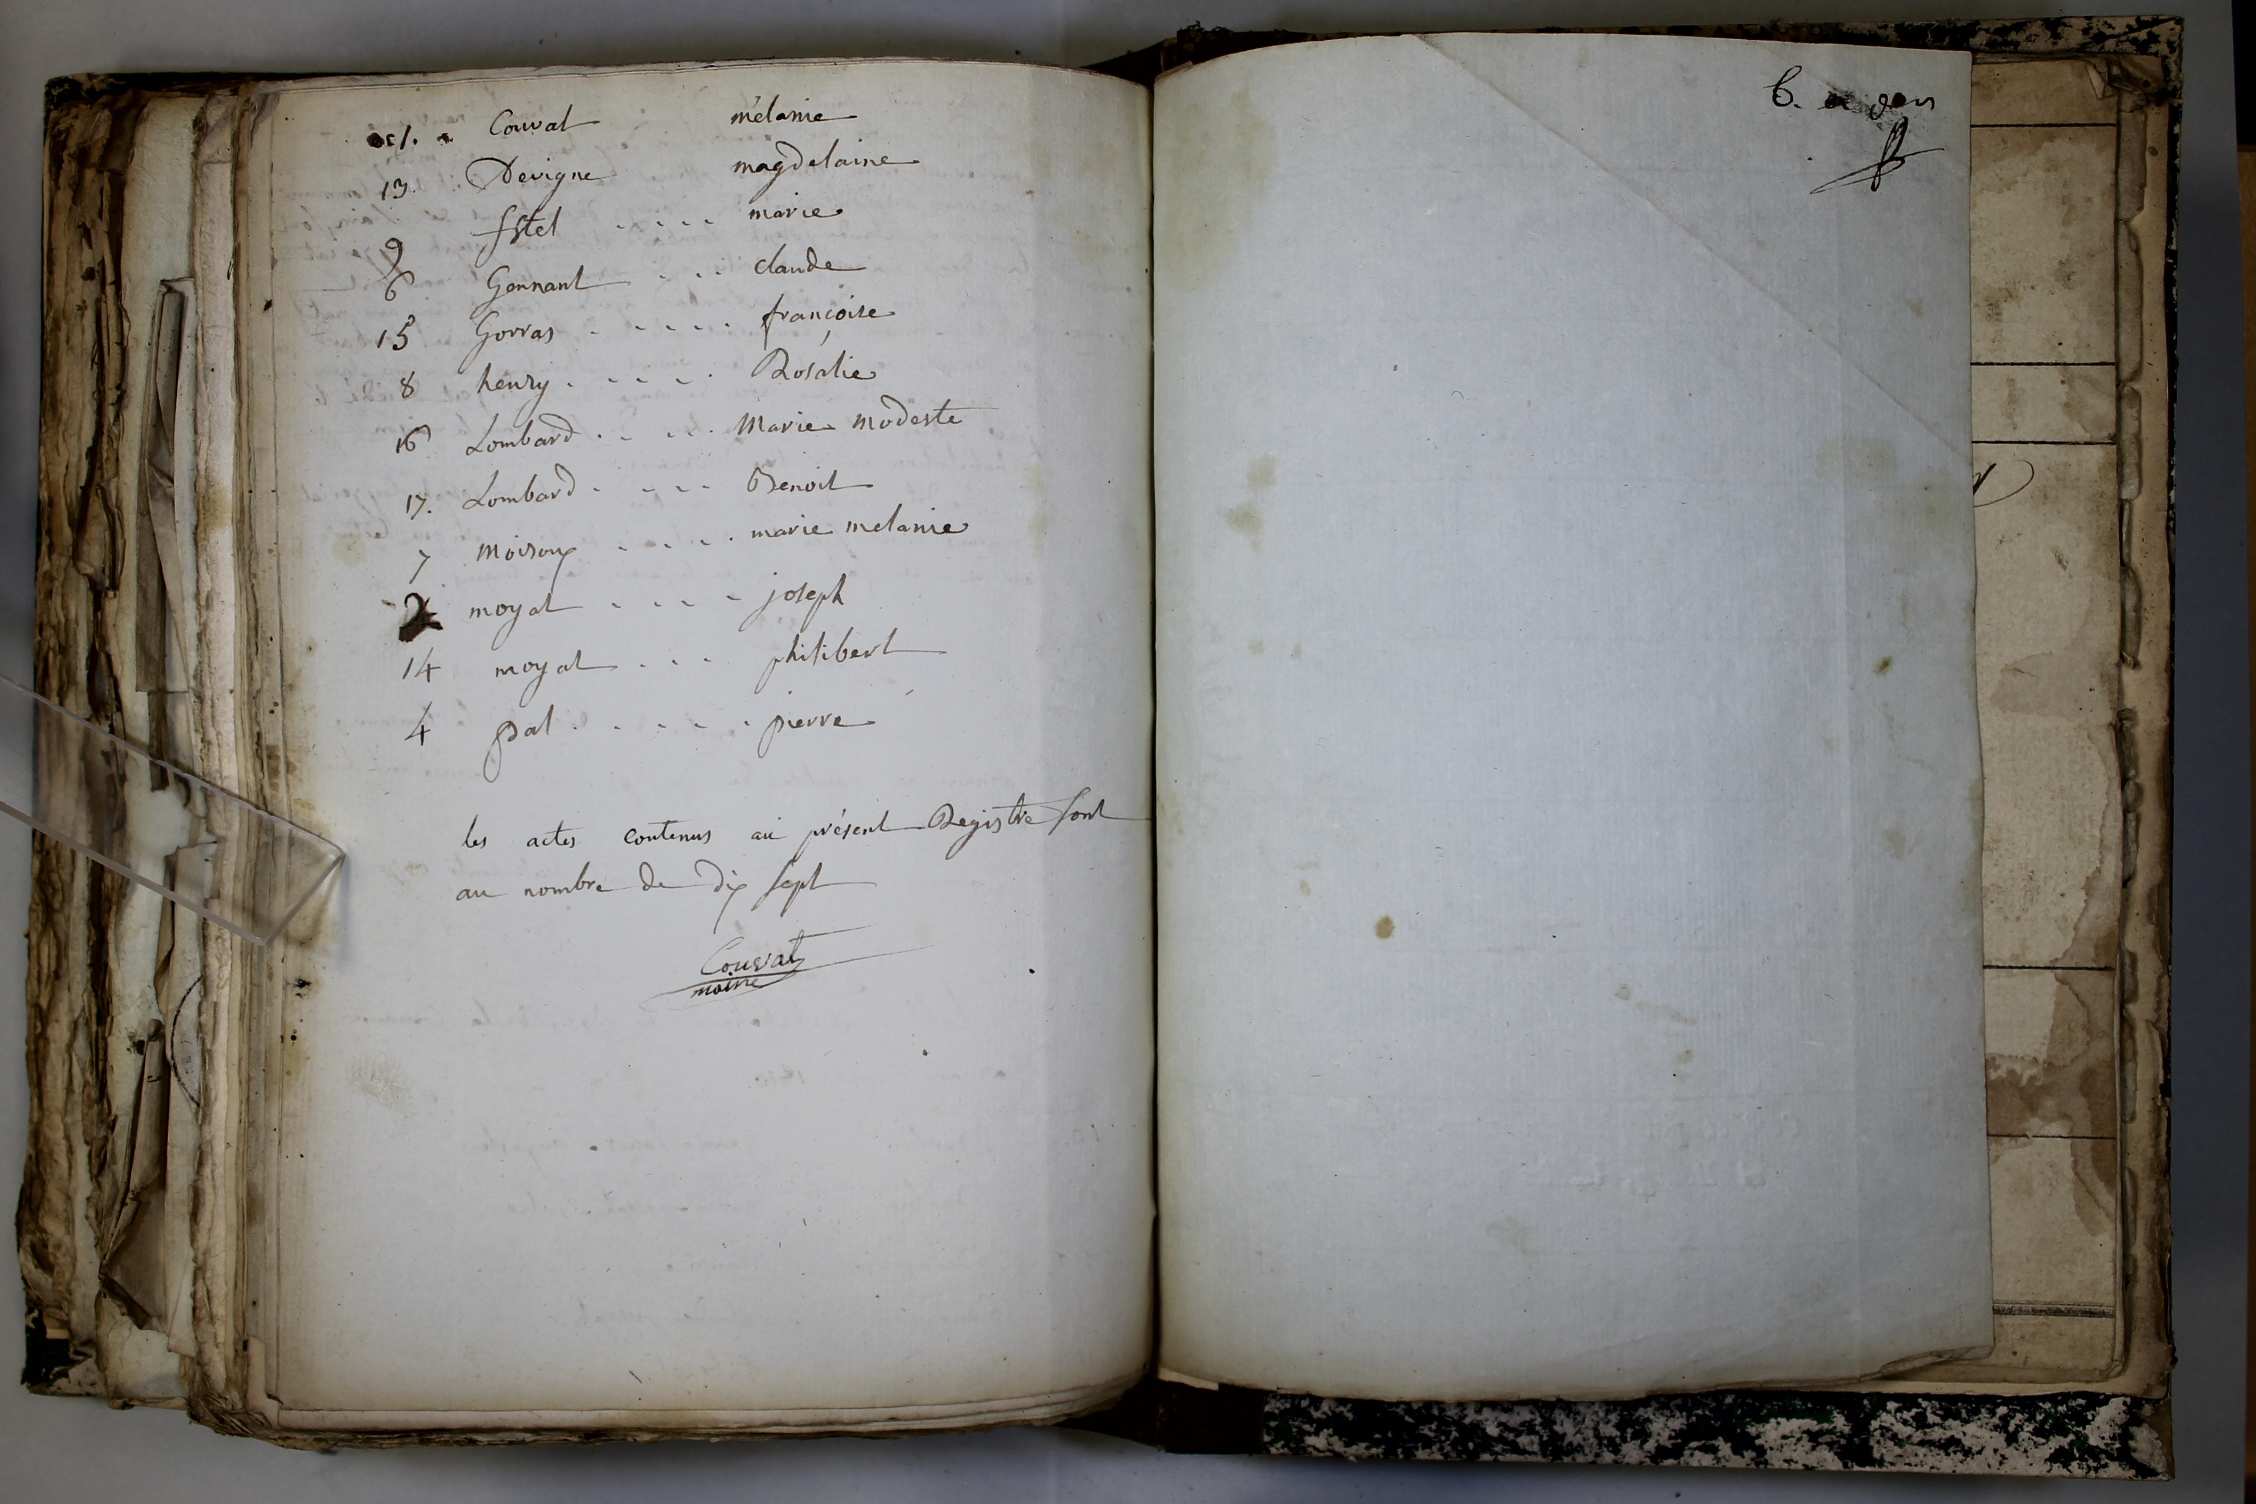 Couvat mélanie
13. Devigne magdelaine
9 Estel . . . . marie
6 Gonnant . . . claude
15 Gorras . . . . . françoise
8 henry . . . . . Rosalie
16 Lombard . . . . Marie modeste
17. Lombard . . . . Benoit
7 moiroux . . . . marie melanie
2 moyat . . . . joseph
14 moyat . . . philibert
4 pal . . . . . pierre
les actes contenus au présent Registre sont
au nombre de dix sept
Couvat
maire